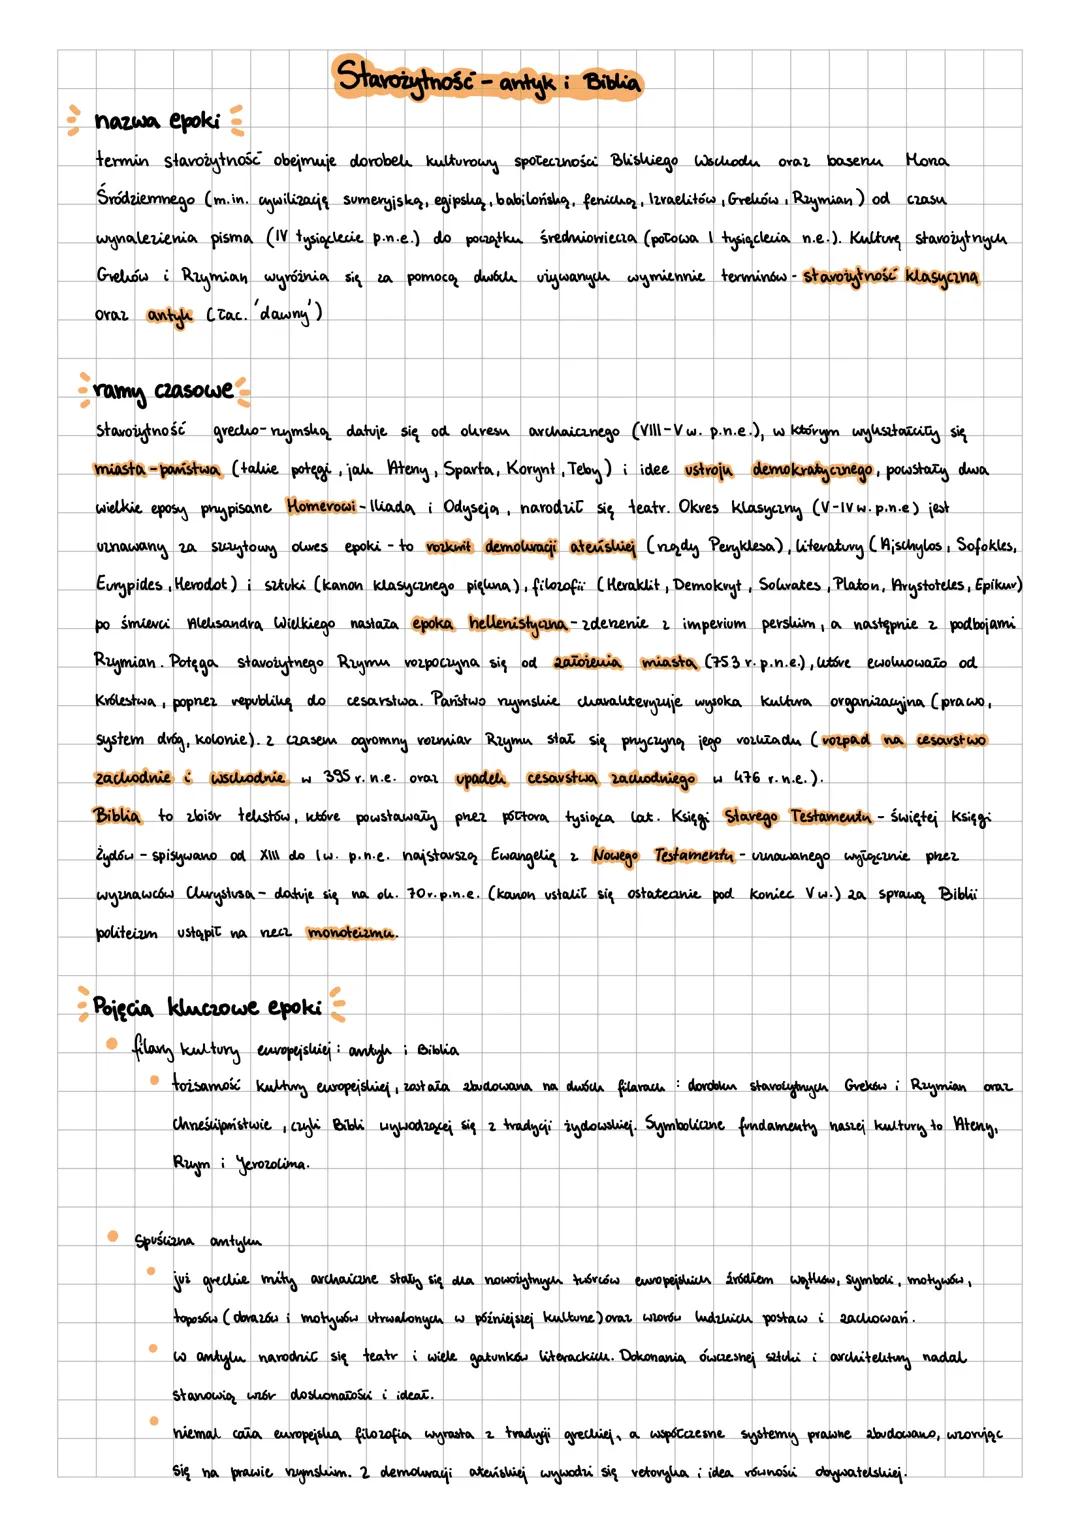 Starożytność - antyk i Biblia
nazwa epoki
termin starożytność obejmuje dorobek kulturowy społeczności Bliskiego Wschodu oraz basenu Morza
Śródziemnego (m.in. cywilizację sumeryjską, egipską, babilońską, fenicką, Izraelitów, Greków, Rzymian) od czasu
wynalezienia pisma (IV tysiąclecie p.n.e.) do początku średniowiecza (połowa I tysiąclecia n.e.). Kulturę starożytnych
Greków i Rzymian wyróżnia się za pomocą dwóch używanych wymiennie terminów - starożytność klasyczna
oraz antyk (łac. 'dawny')
ramy czasowe
Starożytność grecko-rzymską datuje się od okresu archaicznego (VIII-V w. p.n.e.), w którym wykształciły się
miasta-państwa (takie potęgi, jak Ateny, Sparta, Korynt, Teby) i idee ustroju demokratycznego, powstały dwa
wielkie eposy przypisane Homerowi - Iliada i Odyseja, narodził się teatr. Okres klasyczny (V-IV w. p.n.e) jest
uznawany za szczytowy okres epoki - to rozkwit demokracji ateńskiej (rządy Peryklesa), literatury (Ajschylos, Sofokles,
Eurypides, Herodot) i sztuki (kanon klasycznego piękna), filozofii (Heraklit, Demokryt, Sokrates, Platon, Arystoteles, Epikur)
po śmierci Aleksandra Wielkiego nastała epoka hellenistyczna - zderzenie z imperium perskim, a następnie z podbojami
Rzymian. Potęga starożytnego Rzymu rozpoczyna się od założenia miasta (753 r. p.n.e.), które ewoluowało od
Królestwa, poprzez republikę do cesarstwa. Państwo rzymskie charakteryzuje wysoka kultura organizacyjna (prawo,
system dróg, kolonie). z czasem ogromny rozmiar Rzymu stał się przyczyną jego rozkładu (rozpad na cesarstwo
zachodnie i wschodnie w 395 r. n.e. oraz upadek cesarstwa zachodniego w 476 r. n.e.).
Biblia to zbiór tekstów, które powstawały przez półtora tysiąca lat. Księgi Starego Testamentu - świętej Księgi
Żydów - spisywano od XIII do I w. p.n.e. najstarszą Ewangelię z Nowego Testamentu - uznawanego wyłącznie przez
wyznawców Chrystusa - datuje się na ok. 70 r. p.n.e. (kanon ustalił się ostatecznie pod koniec V w.) za sprawą Biblii
politeizm ustąpił na rzecz monoteizmu.
Pojęcia kluczowe epoki
filary kultury europejskiej: antyk i Biblia
tożsamość kultury europejskiej, została zbudowana na dwóch filarach: dorobku starożytnych Greków i Rzymian oraz
chrześcijaństwie, czyli Bibli wywodzącej się z tradycji żydowskiej. Symboliczne fundamenty naszej kultury to Ateny,
Rzym i Jerozolima.
Spuścizna antyku
już greckie mity archaiczne stały się dla nowożytnych twórców europejskich źródłem wątków, symboli, motywów,
toposów (obrazów i motywów utrwalonych w późniejszej kulturze) oraz wzorów ludzkich postaw i zachowań.
w antyku narodził się teatr i wiele gatunków literackich. Dokonania ówczesnej sztuki i architektury nadal
stanowią wzór doskonałości i ideał.
niemal cała europejska filozofia wyrasta z tradycji greckiej, a współczesne systemy prawne zbudowano, wzorując
się na prawie rzymskim. Z demokracji ateńskiej wywodzi się retoryka i idea równości obywatelskiej.